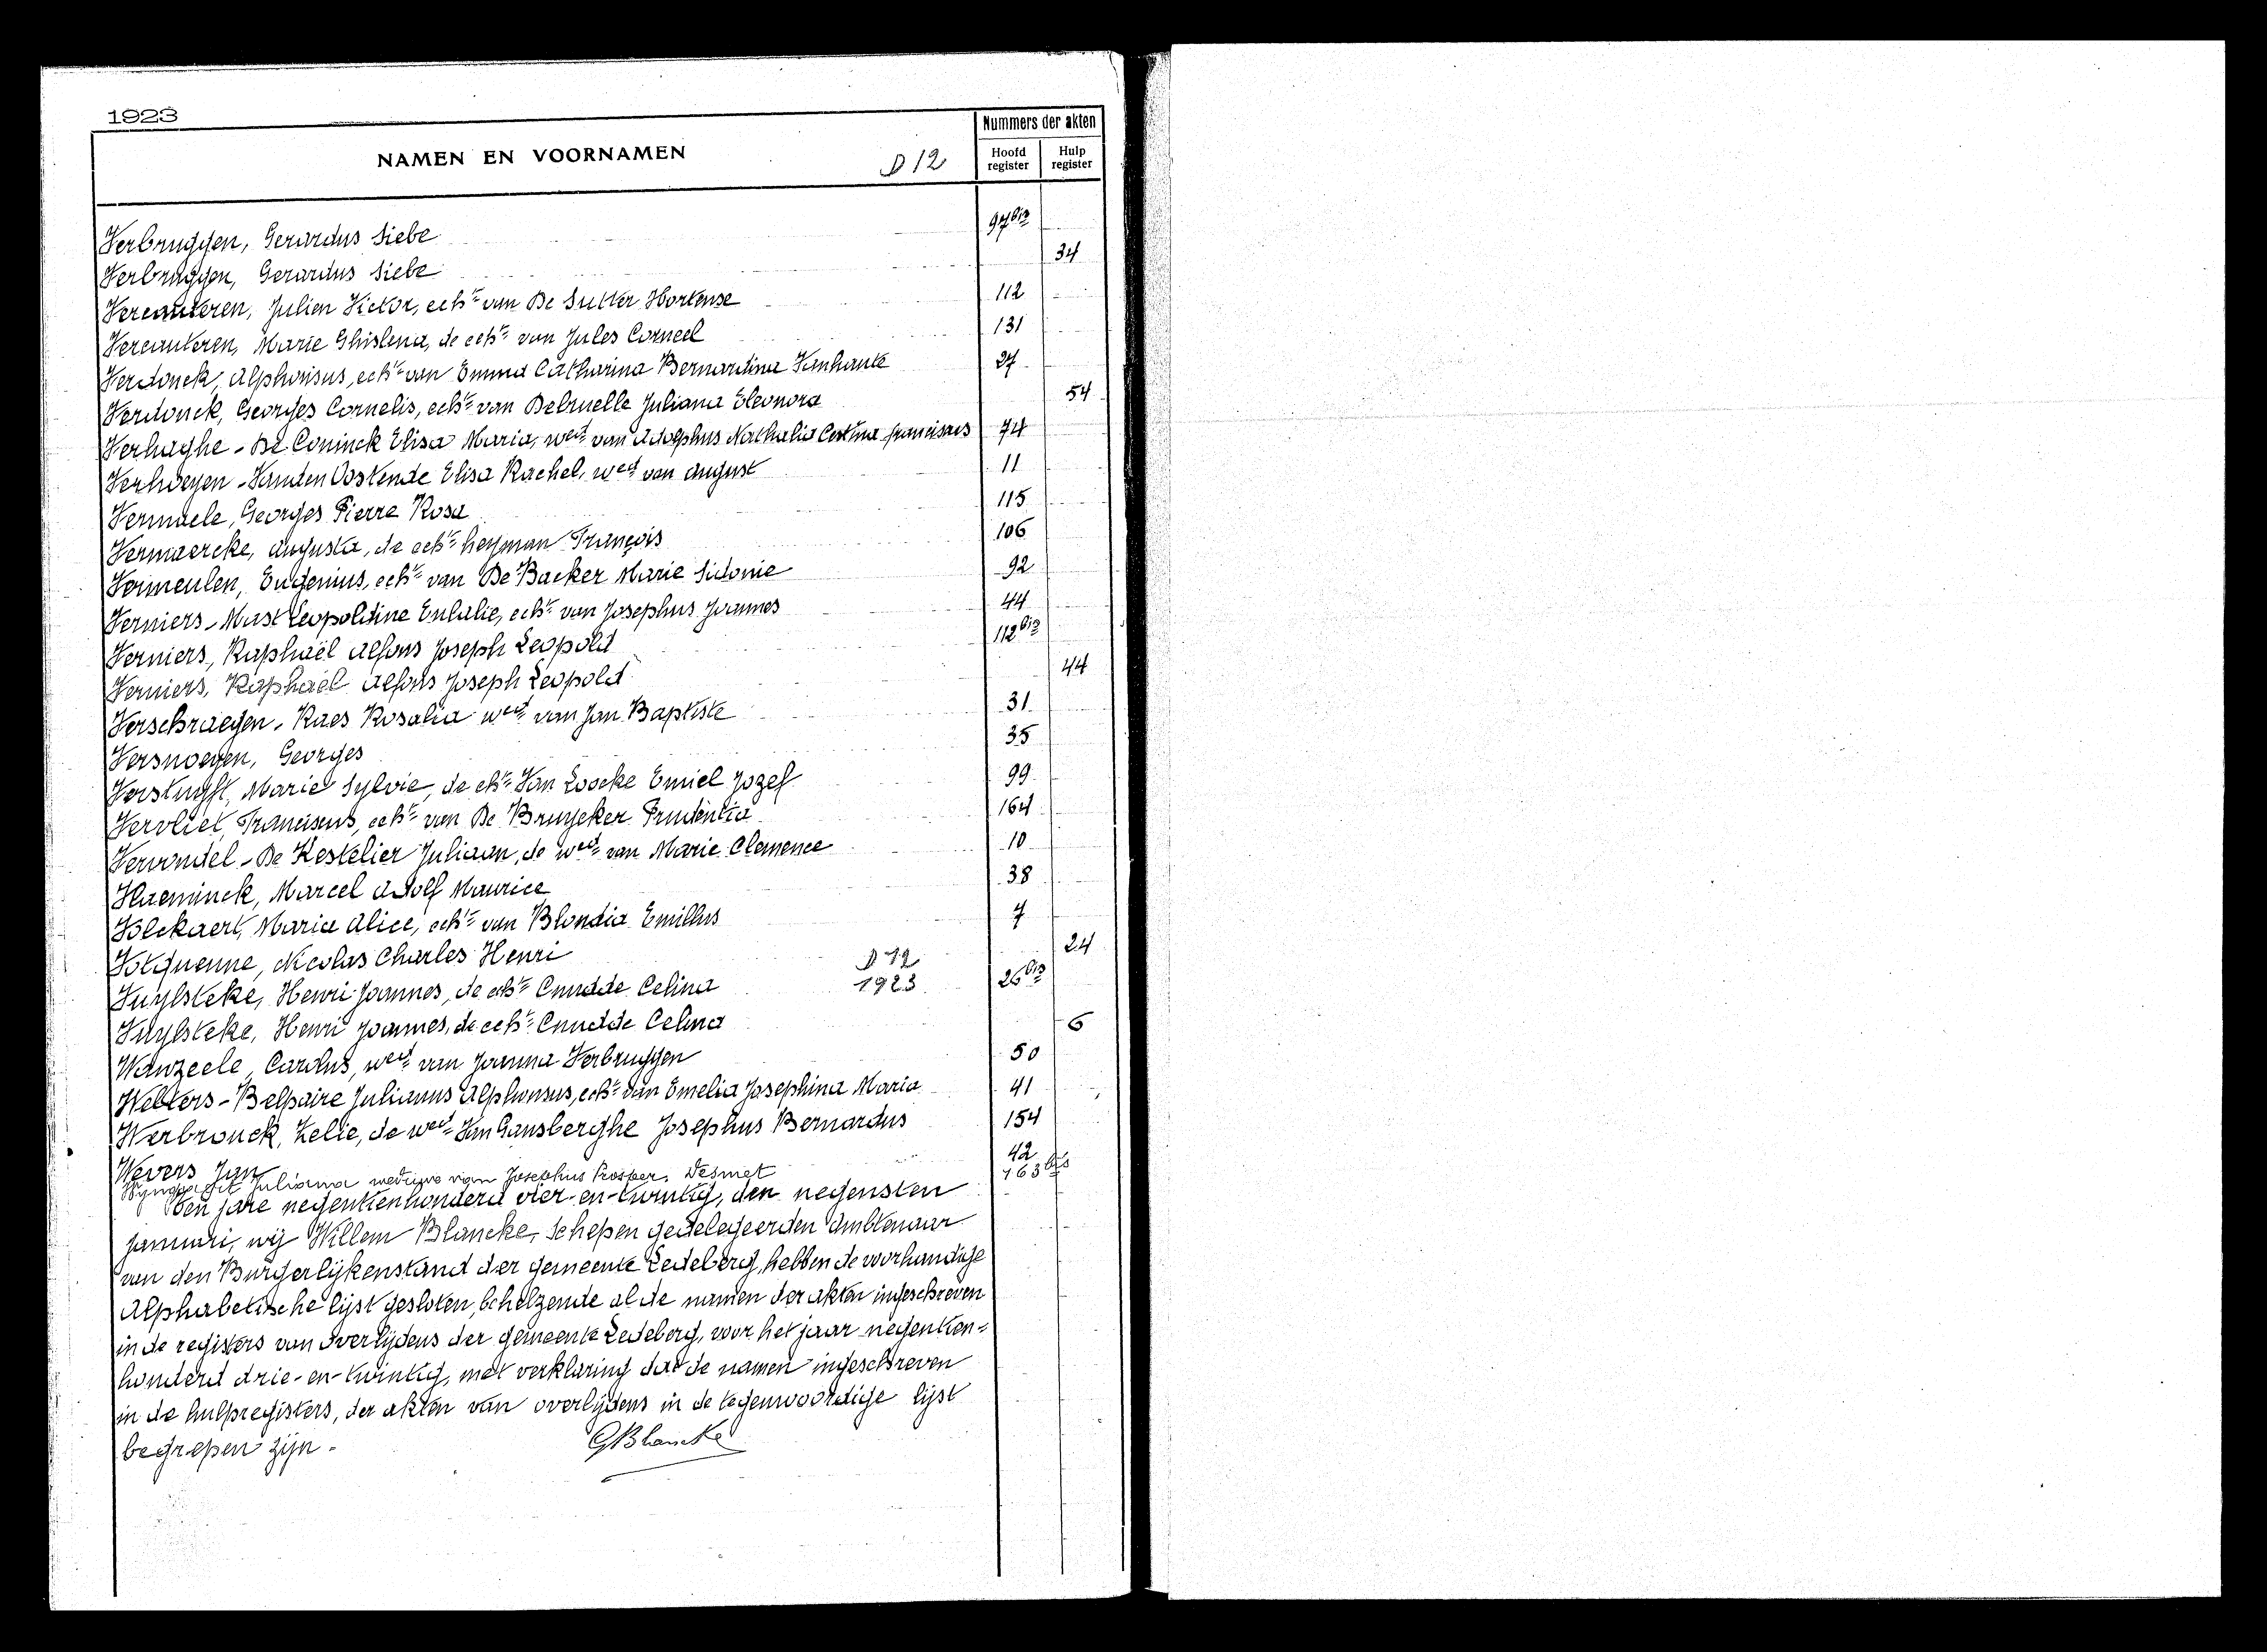 1923
NAMEN EN VOORNAMEN
D 12
Nummers der akten
Hoofd register
Hulp register
Verbruggen, Gerardus Siebe 97bis
Verbruggen, Gerardus Siebe 34
Vercauteren, Julien Victor, echte van De Sutter Hortense 112
Vercauteren, Marie Ghislena, de echte van Jules Corneel 131
Verdonck, Alphonsus, echte van Emma Catharina Bernardina Vanhaute 27
Verdonck, Georges Cornelis, echte van Delruelle Juliana Eleonora 54
Verhaghe - De Coninck Elisa Maria, wed. van Adolphus Nathalia franciscus 74
Verhoeyen - Vanden Oostende Elisa Rachel, wed. van August 11
Vermaele, Georges Pierre Rosa 115
Vermaercke, Augusta, de echte heyman François 106
Vermeulen, Eugenius, echte van De Backer Marie Sidonie 92
Verniers - Mast Leopoldine Eulalie, echte van Josephus Joannes 44
Verniers, Raphaël Alfons Joseph Leopold 112bis
Verniers, Raphaël Alfons Joseph Leopold 44
Verschraegen - Raes Rosalia wed. van Jan Baptiste 31
Versnoeyen, Georges 35
Verstuyft, Marie Sylvie, de echte Van Loocke Emiel Jozef 99
Vervliet, Franciscus, echte van De Bruycker Prudentia 164
Vervondel - De Kestelier Juliaan, de wed. van Marie Clemence 10
Vlaeminck, Marcel Adolf Maurice 38
Volckaert, Maria Alice, echte van Blondia Emillus 7
Votquenne, Nicolas Charles Henri 24
D 12
1923
Vuylsteke, Henri Joannes, de echte Cnudde Celina 26bis
Vuylsteke, Henri Joannes, de echte Cnudde Celina 6
Wanzeele, Carolus, wed. van Joanna Verbruggen 50
Welters - Belpaire Julianus Alphonsus, echte van Emelia Josephina Maria 41
Werbrouck, Zelie, de wed. Van Gansberghe Josephus Bernardus 154
Wevers Jan 42
Juliana weduwe van Josephus Prosper Desmet 163bis
Den jare negentienhonderd vier-en-twintig, den negensten
januari, wij Willem Blancke, Schepen gedelegeerden Ambtenaar
van den Burgerlijkenstand der gemeente Ledeberg, hebben de voorhandige
Alphabetische lijst gesloten, behelzende al de namen der akten ingeschreven
in de registers van overlijdens der gemeente Ledeberg, voor het jaar negentien=
honderd drie-en-twintig, met verklaring dat de namen ingeschreven
in de hulpregisters, der akten van overlijdens in de tegenwoordige lijst
begrepen zijn.
GBlancke